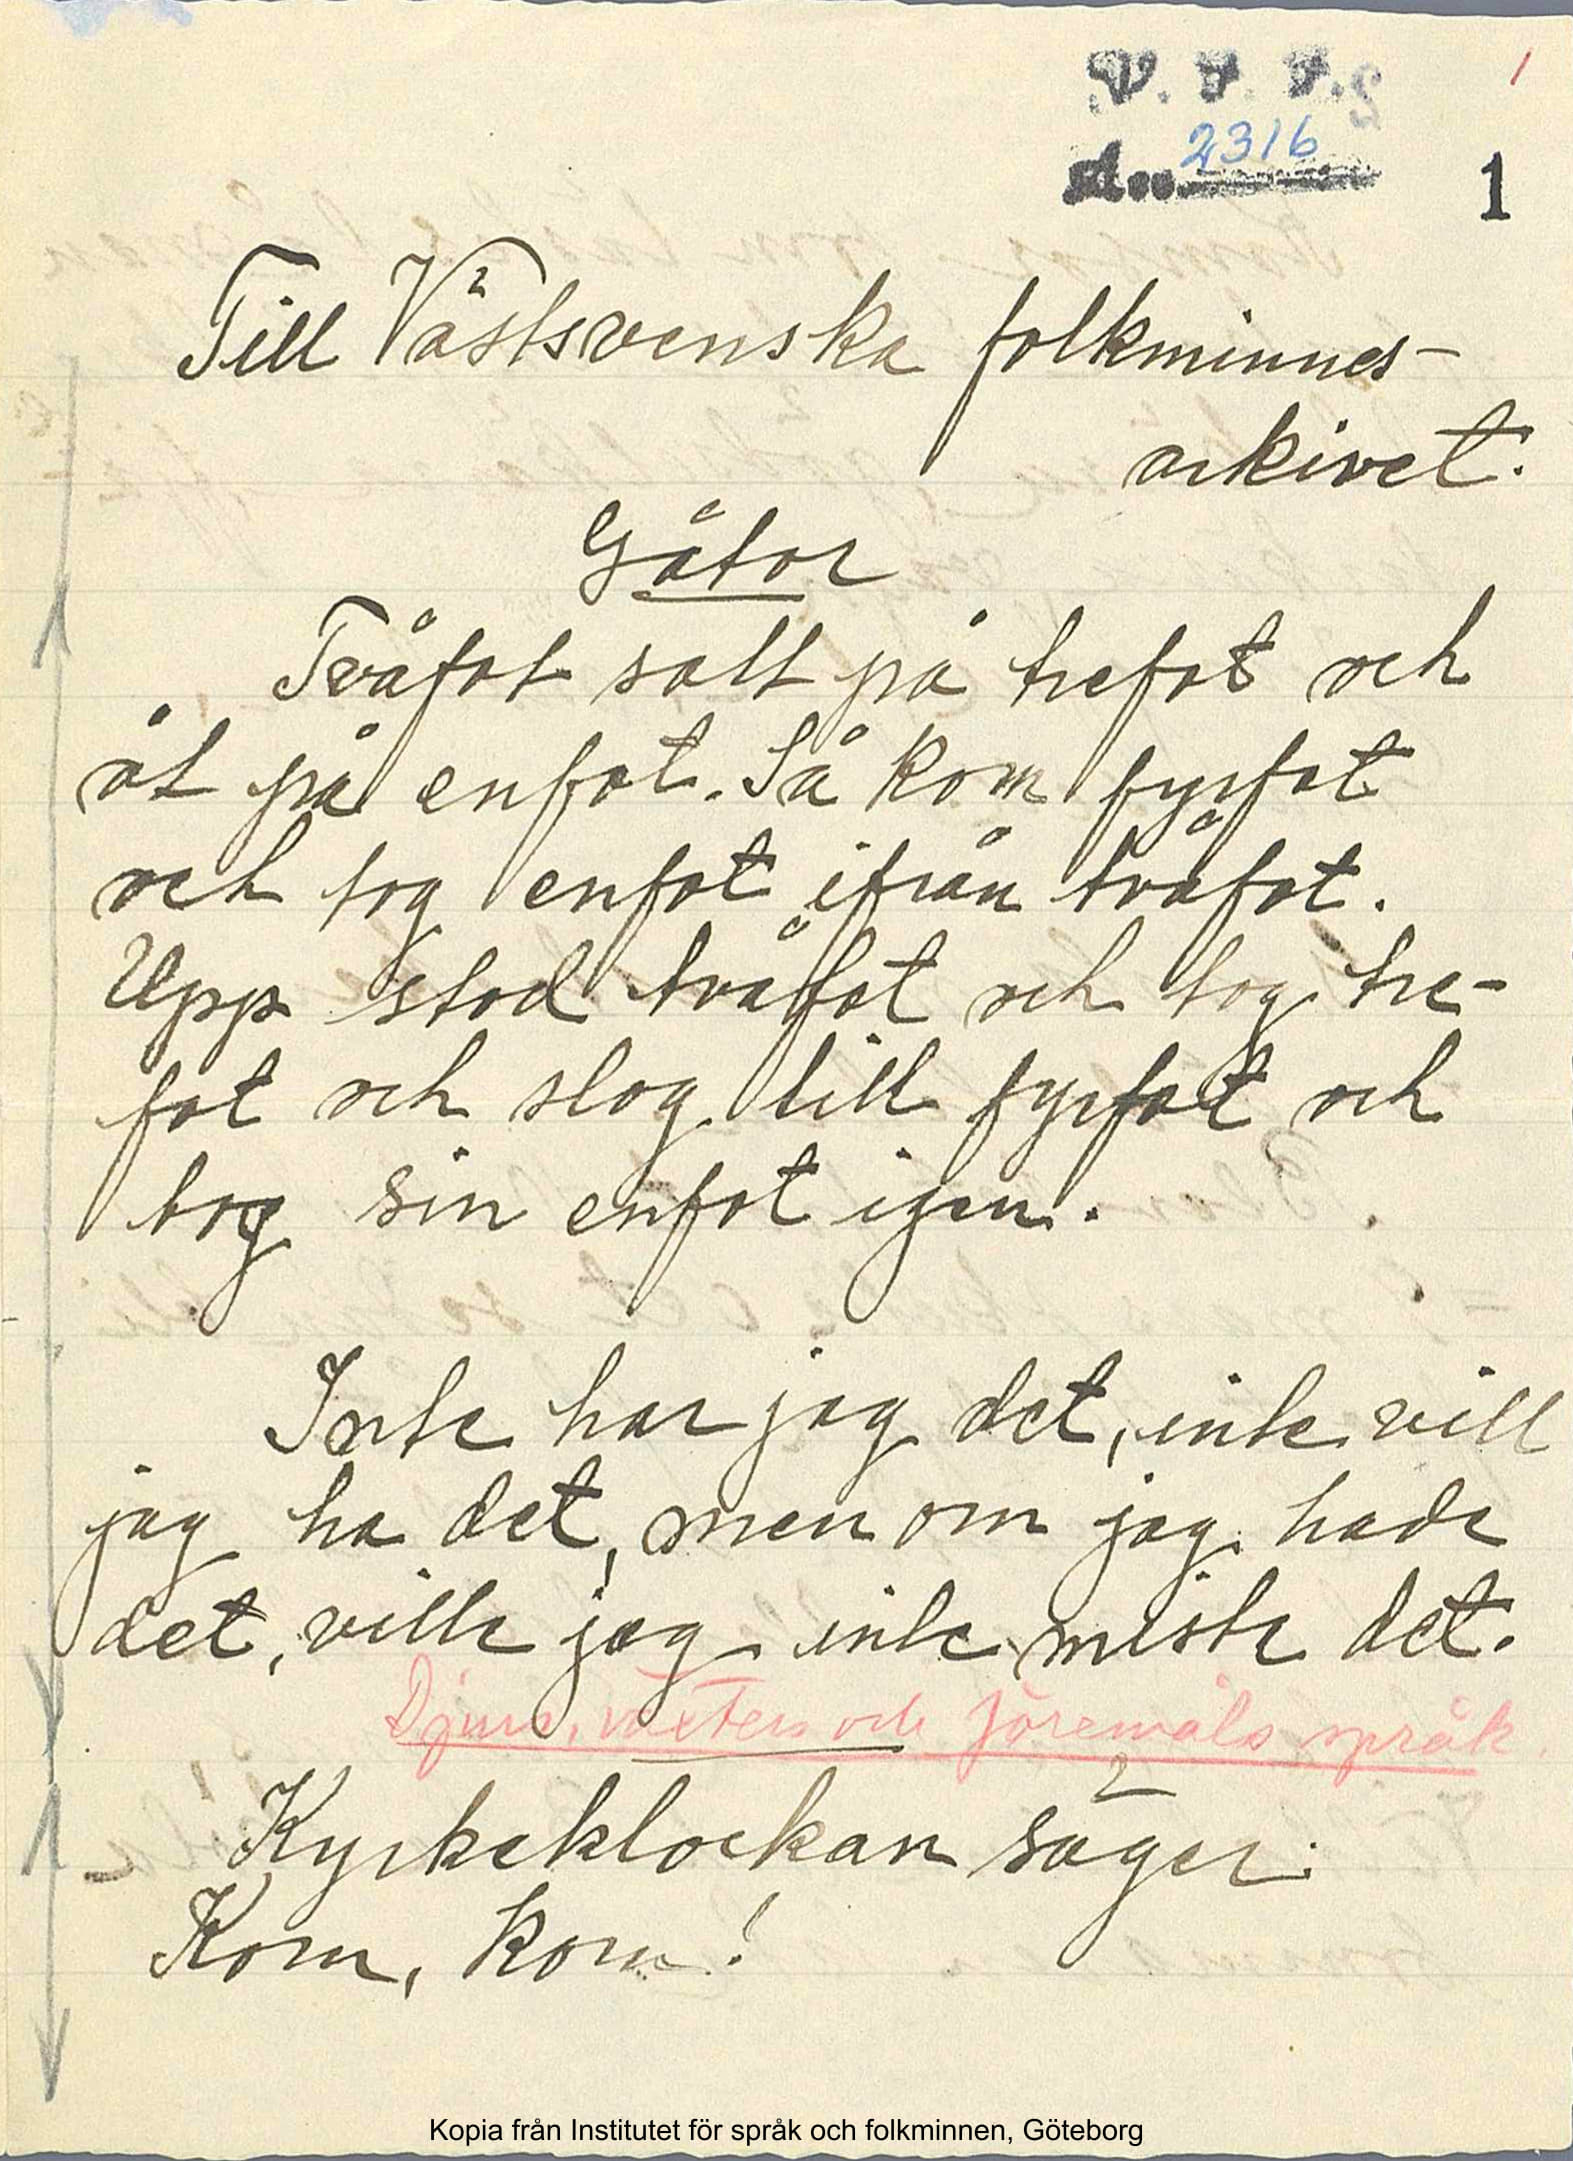 V. F. F.
2316
1
1
Till Västsvenska folkminnes-
arkivet.
Gåtor
Tvåfot satt på trefot och
åt på enfot. Så kom fyrfot
och tog enfot ifrån tvåfot.
Upp stod tvåfot och tog tre-
fot och slog till fyrfot och
tog sin enfot igen.
Inte har jag det, inte vill
jag ha det, men om jag hade
det, ville jag inte miste det.
Djurs, växters och föremåls språk.
Kyrkeklockan säger:
Kom, kom!
Kopia från Institutet för språk och folkminnen, Göteborg